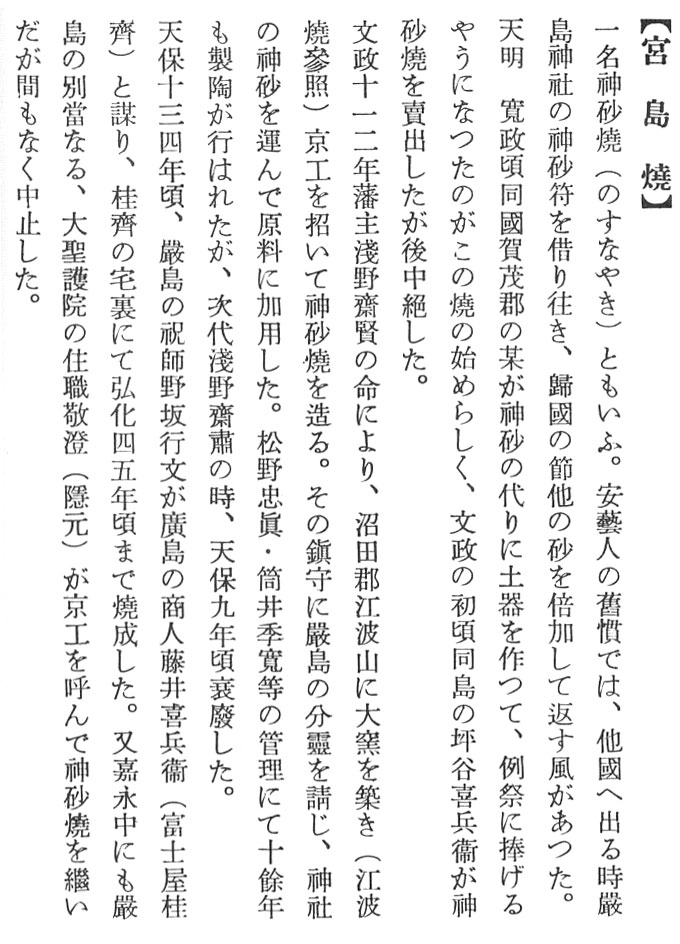 【宮島燒】
一名神砂燒（のすなやき）ともいふ。安藝人の舊慣では、他國へ出る時嚴
島神社の神砂符を借り往き、歸國の節他の砂を倍加して返す風があつた。
天明　寬政頃同國賀茂郡の某が神砂の代りに土器を作つて、例祭に捧げる
やうになつたのがこの燒の始めらしく、文政の初頃同島の坪谷喜兵衞が神
砂燒を賣出したが後中絕した。
文政十一二年藩主淺野齋賢の命により、沼田郡江波山に大窯を築き（江波
燒參照）京工を招いて神砂燒を造る。その鎭守に嚴島の分靈を請じ、神社
の神砂を運んで原料に加用した。松野忠眞・筒井季寬等の管理にて十餘年
も製陶が行はれたが、次代淺野齋肅の時、天保九年頃衰廢した。
天保十三四年頃、嚴島の祝師野坂行文が廣島の商人藤井喜兵衞（富士屋桂
齊）と謀り、桂齊の宅裏にて弘化四五年頃まで燒成した。又嘉永中にも嚴
島の別當なる、大聖護院の住職敬澄（隱元）が京工を呼んで神砂燒を繼い
だが間もなく中止した。